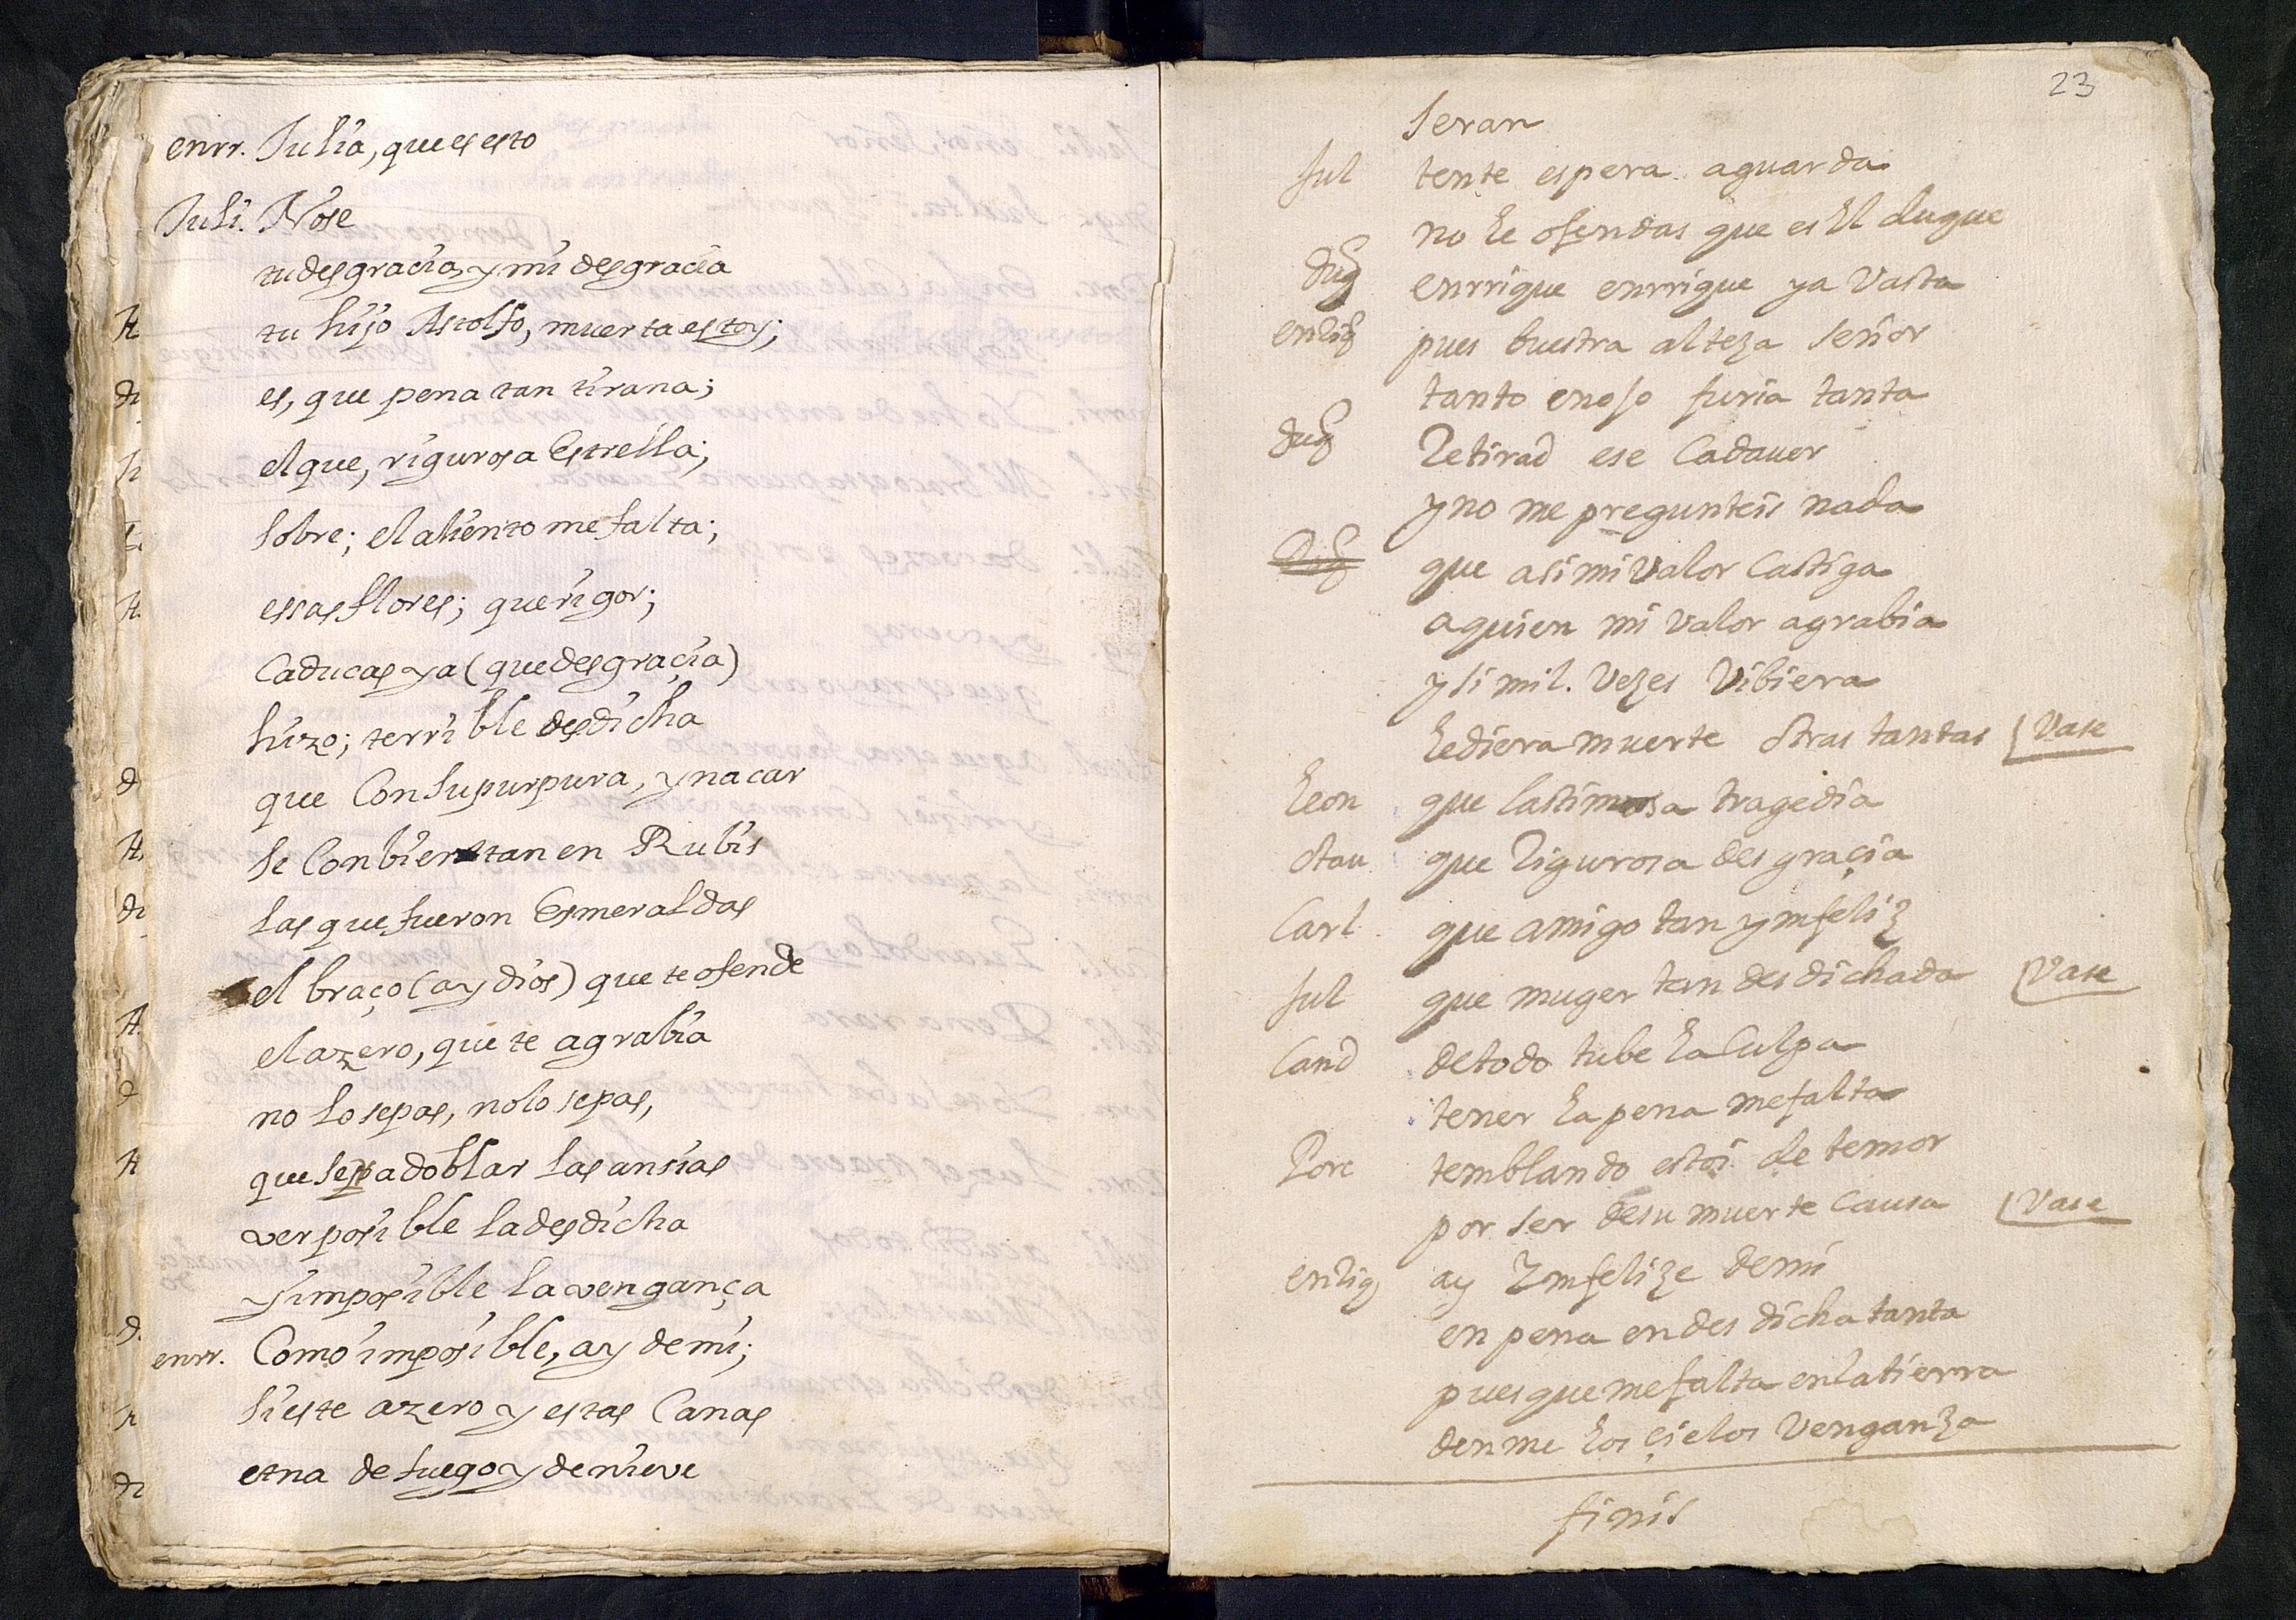 enrr. Julia, que es esto
Juli. No se
tu desgracia, y mi desgracia
tu hijo Astolfo, muerta estoy;
es, que pena tan tirana;
el que, rigurosa Estrella;
sobre; el aliento me falta;
essas flores; que rigor;
Caducas ya (que desgraçia)
hizo; terrible desdicha
que Con su purpura, y nacar
se Conbiertan en Rubis
las que fueron Esmeraldas
el braço (ay dios) que te ofende
el azero, que te agrabia
no lo sepas, no lo sepas,
que sepa doblar las ansias
ver posible la desdicha
y imposible la vengança
enrr. Como imposible, ay de mi;
si este azero y estas Canas
etna de fuego y de nieve
23
seran
Jul tente espera aguarda
no le ofendas que es El duque
duq enrrique enrrique ya Vasta
enriq pues buestra alteza señor
tanto enojo furia tanta
duq Retirad ese Cadauer
y no me pregunteis nada
que asi mi valor Castiga
a quien mi valor agrabia
y si mil. Vezes Vibiera
le diera muerte otras tantas Vase
Leon que lastimosa tragedia
otau que Rigurosa desgraçia
Carl que amigo tan ymfeliz
Jul que muger tan desdichada Vase
Cand de todo tube la Culpa
tener la pena me falta
Porc temblando estoi de temor
por ser de su muerte Causa Vase
enriq ay Imfelize de mi
en pena en desdicha tanta
pues que me falta en la tierra
denme los çielos Venganza
finis